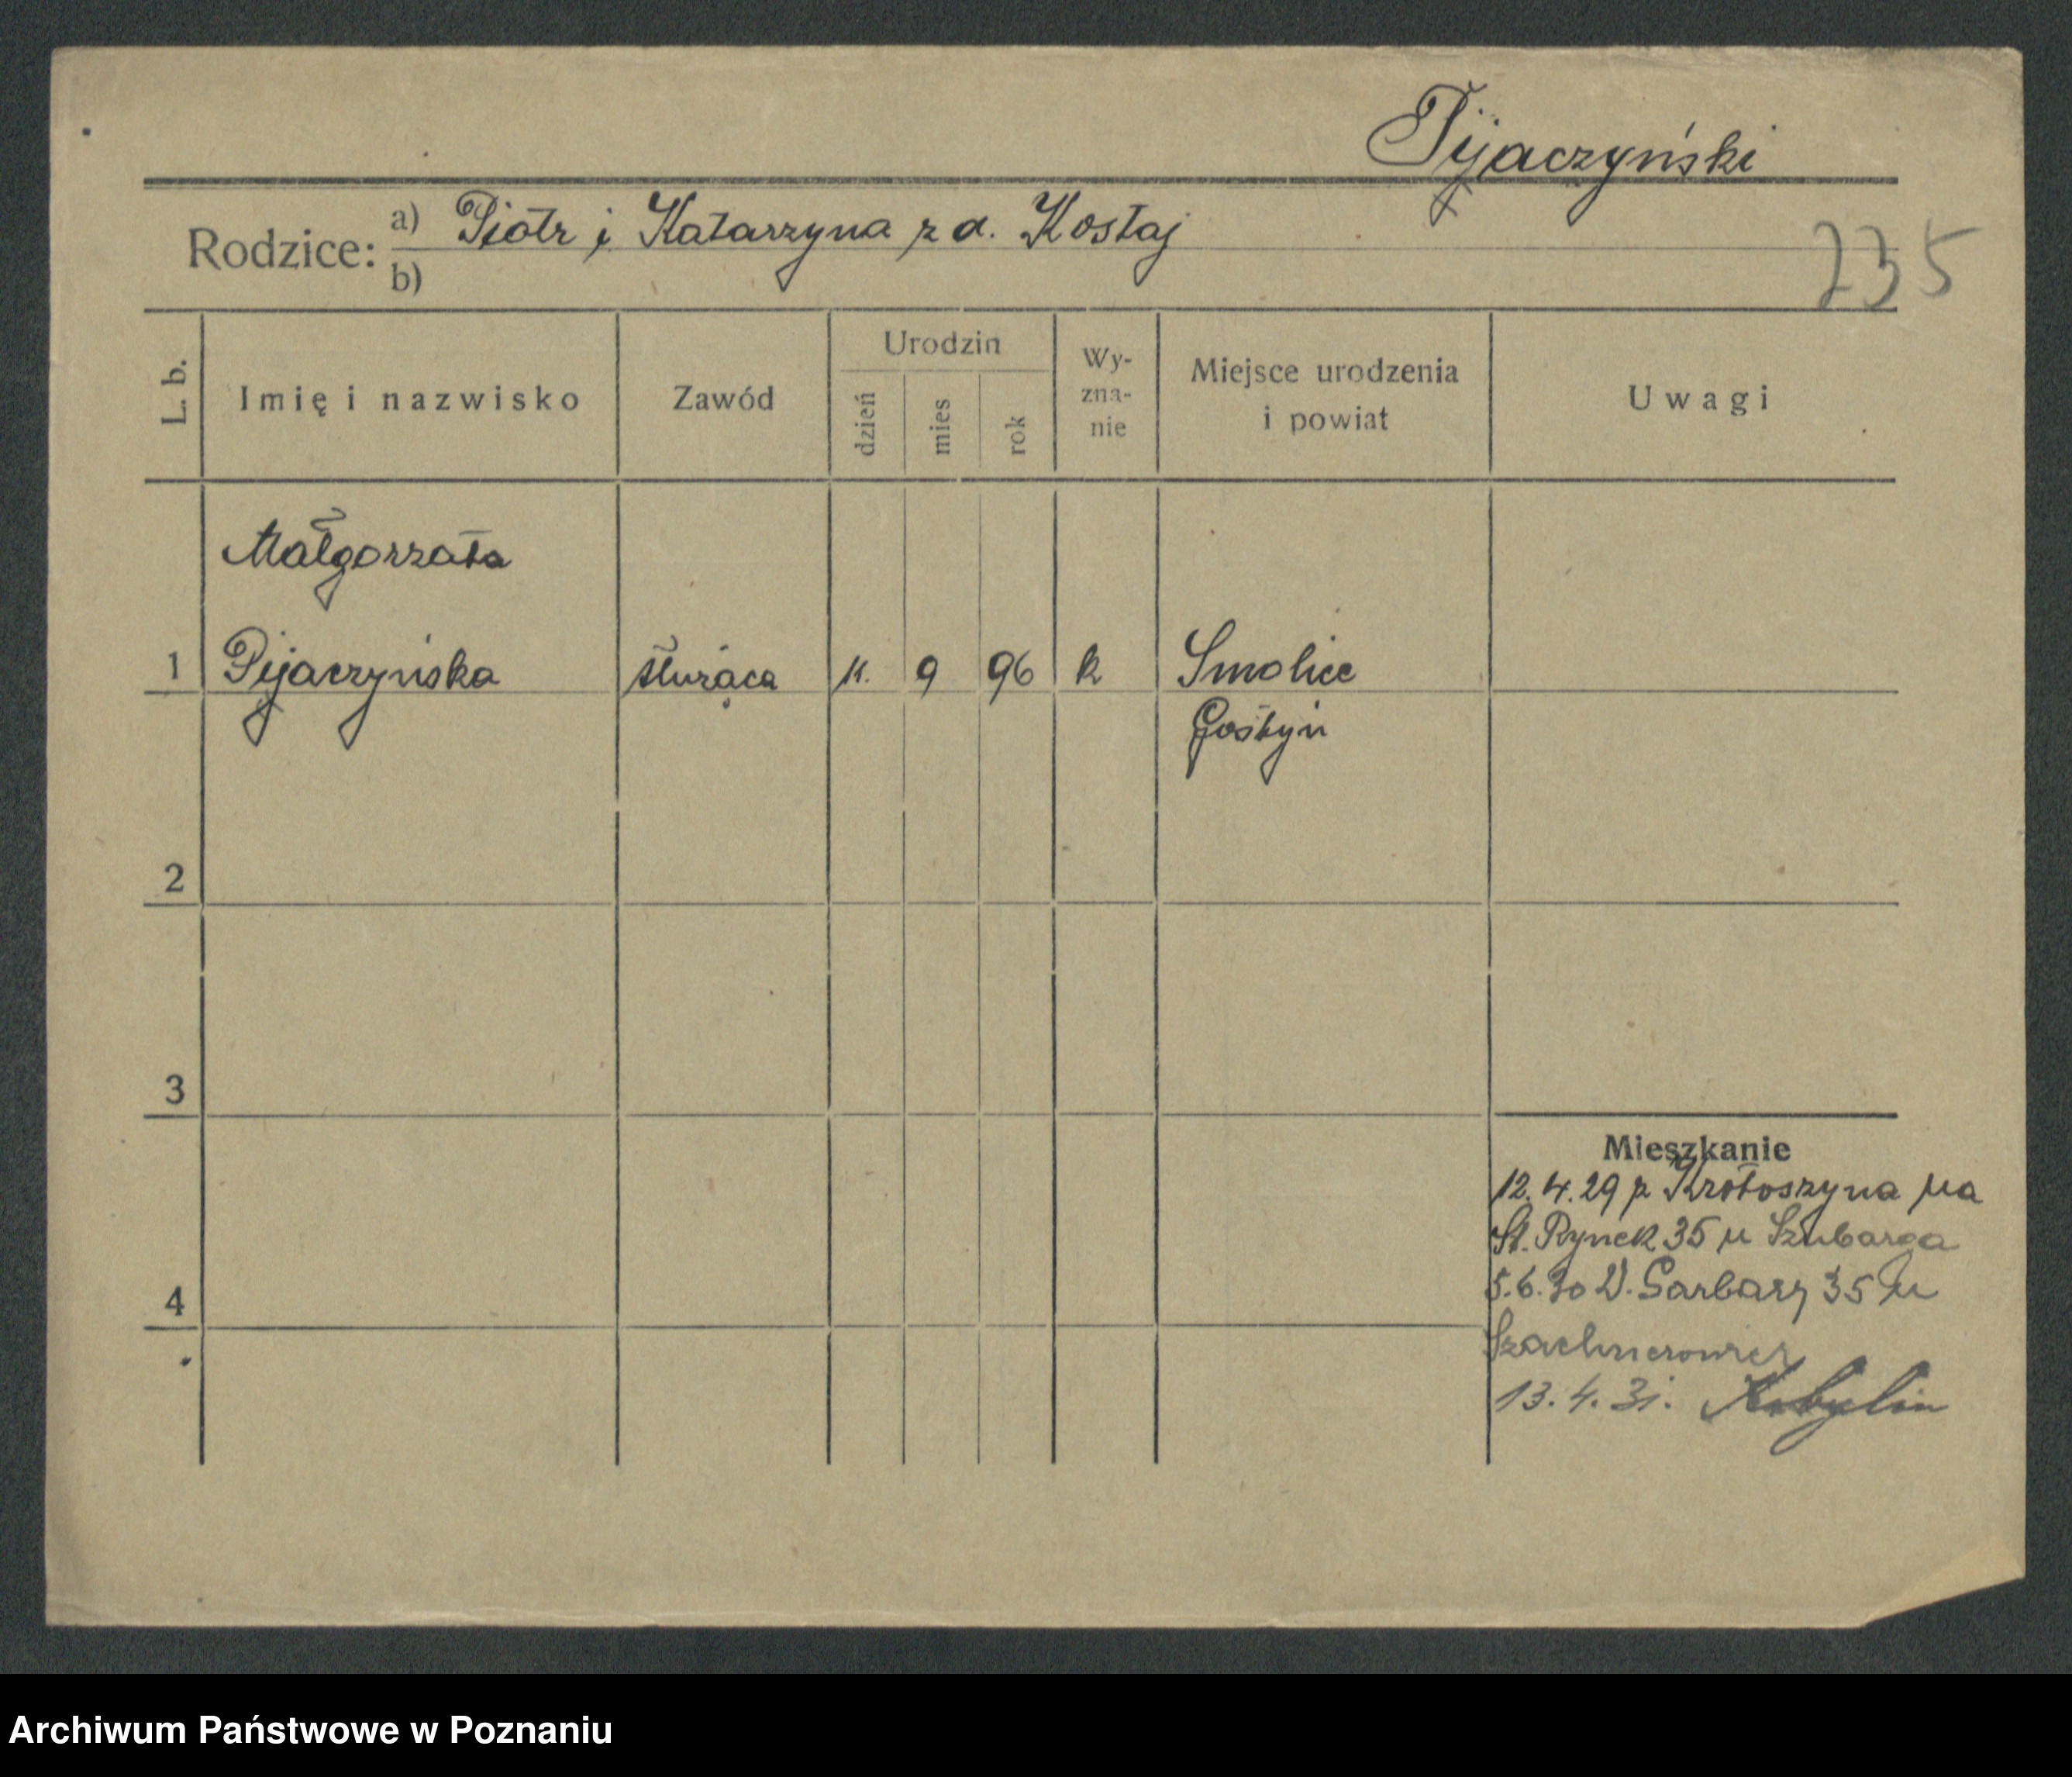 Pijaczyński
Rodzice: a) Piotr i Katarzyna z d. Kostaj
b)
235
L. b.
Imię i nazwisko
Zawód
Urodzin
dzień
mies
rok
Wy-
zna-
nie
Miejsce urodzenia
i powiat
Uwagi
Małgorzata
1 Pijaczyńska służąca 11. 9 96 k Smolice
Gostyń
2
3
4
Mieszkanie
12.4.29 z Krotoszyna na
St. Rynek 35 u Szubarga
5.6.30 W. Garbary 35 u
13.4.31. Kobylin
Archiwum Państwowe w Poznaniu